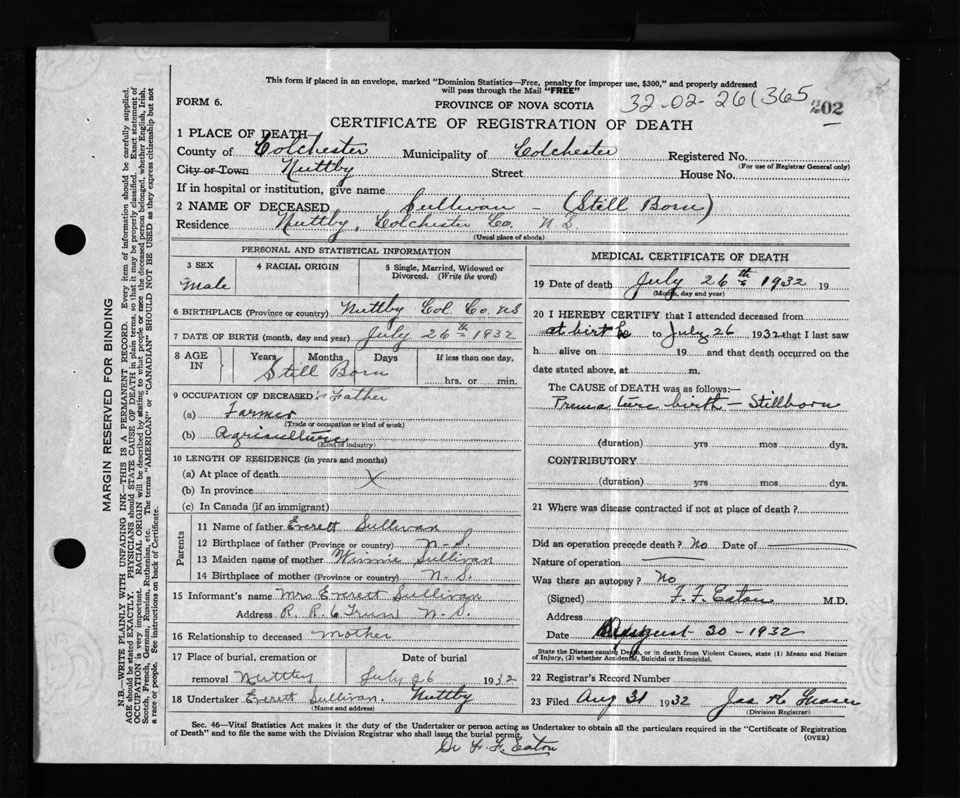 This form if placed in an envelope, marked "Dominion Statistics—Free, penalty for improper use, $300," and properly addressed
will pass through the Mail "FREE"
FORM 6. PROVINCE OF NOVA SCOTIA 32-02-26(365 202
CERTIFICATE OF REGISTRATION OF DEATH
1 PLACE OF DEATH—
County of Colchester Municipality of Colchester Registered No.
(For use of Registrar General only)
City or Town Nuttby Street House No.
If in hospital or institution, give name
2 NAME OF DECEASED Sullivan - (Still Born)
Residence Nuttby, Colchester Co. N S
(Usual place of abode)
PERSONAL AND STATISTICAL INFORMATION
3 SEX 4 RACIAL ORIGIN 5 Single, Married, Widowed or
Divorced. (Write the word)
Male
6 BIRTHPLACE (Province or country) Nuttby Col Co. NS
7 DATE OF BIRTH (month, day and year) July 26th 1932
8 AGE IN Years Months Days If less than one day,
Still Born
hrs. or min.
9 OCCUPATION OF DECEASED's Father
(a) Farmer
(Trade or occupation or kind of work)
(b) Agriculture
(Kind of industry)
10 LENGTH OF RESIDENCE (in years and months)
(a) At place of death X
(b) In province
(c) In Canada (if an immigrant)
Parents
11 Name of father Everett Sullivan
12 Birthplace of father (Province or country) N. S.
13 Maiden name of mother Winnie Sullivan
14 Birthplace of mother (Province or country) N. S.
15 Informant's name Mrs Everett Sullivan
Address R. R. 6 Truro N. S.
16 Relationship to deceased mother
17 Place of burial, cremation or Date of burial
removal Nuttby July 26 1932
18 Undertaker Everett Sullivan. Nuttby
(Name and address)
MEDICAL CERTIFICATE OF DEATH
19 Date of death July 26th 1932 19
(Month, day and year)
20 I HEREBY CERTIFY that I attended deceased from
at birth to July 26 1932 that I last saw
h alive on 19 and that death occurred on the
date stated above, at m.
The CAUSE OF DEATH was as follows:—
Premature birth - Stillborn
(duration) yrs mos dys.
CONTRIBUTORY
(duration) yrs mos dys.
21 Where was disease contracted if not at place of death?
Did an operation precede death? No Date of
Nature of operation
Was there an autopsy? No
(Signed) F. F. Eaton M.D.
Address
Date August 30 - 1932
State the Disease causing Death, or in death from Violent Causes, state (1) Means and Nature
of Injury, (2) whether Accidental, Suicidal or Homicidal.
22 Registrar's Record Number
23 Filed Aug 31 1932 Jas K Fraser
(Division Registrar)
Sec. 46—Vital Statistics Act makes it the duty of the Undertaker or person acting as Undertaker to obtain all the particulars required in the "Certificate of Registration
of Death" and to file the same with the Division Registrar who shall issue the burial permit. (OVER)
Dr F. F. Eaton
MARGIN RESERVED FOR BINDING
N.B.—WRITE PLAINLY WITH UNFADING INK—THIS IS A PERMANENT RECORD. Every item of information should be carefully supplied.
AGE should be stated EXACTLY. PHYSICIANS should STATE CAUSE OF DEATH in plain terms, so that it may be properly classified. Exact statement of
OCCUPATION is very important. RACIAL ORIGIN will be described by stating to what people or race the deceased person belonged, whether English, Irish,
Scotch, French, German, Russian, Ruthenian, etc. The terms "AMERICAN" or "CANADIAN" SHOULD NOT BE USED as they express citizenship but not
a race or people. See instructions on back of Certificate.